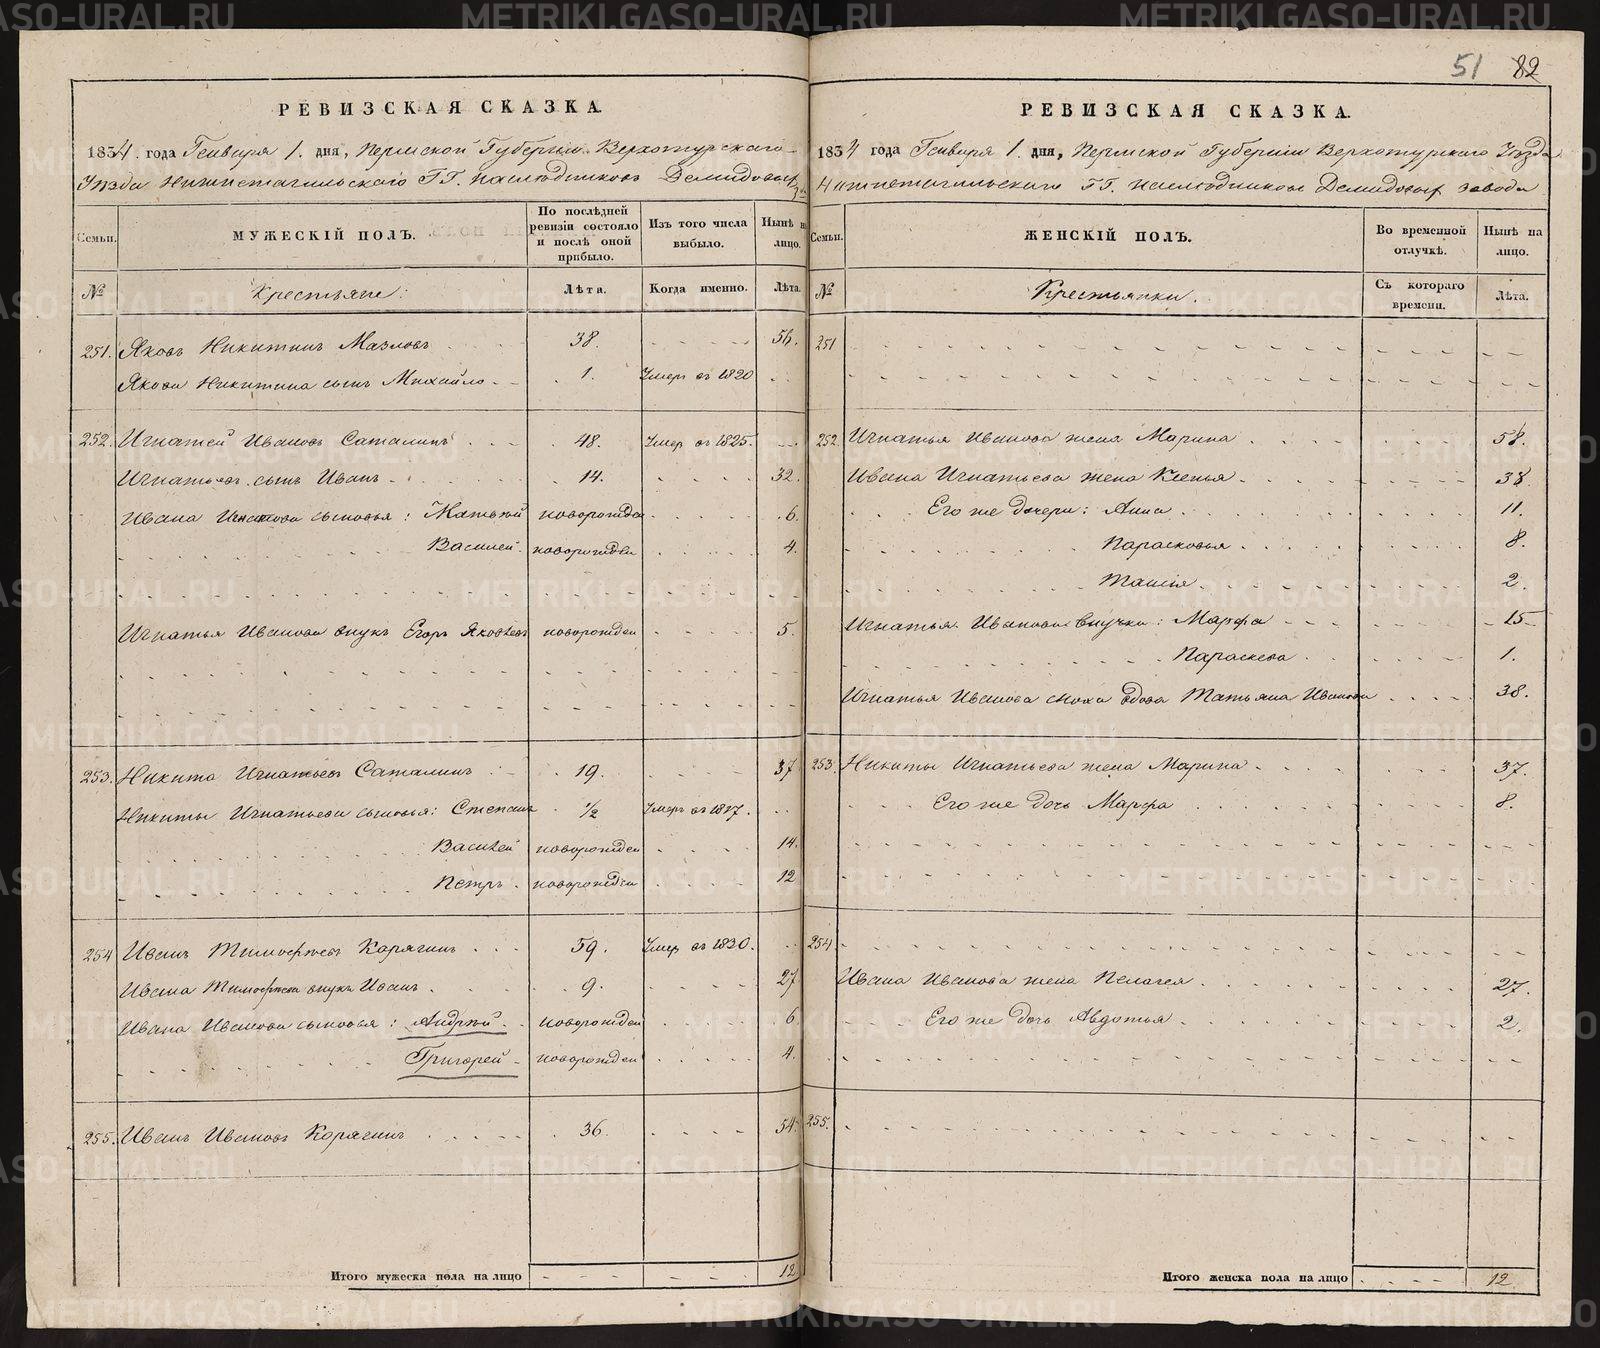 51 82
РЕВИЗСКАЯ СКАЗКА.
1834. года Генваря 1. дня, Пермской Губерніи Верхотурскаго
Уѣзда Нижнетагильскаго ГГ. Наслѣдниковъ Демидовыхъ
Семьи.
МУЖЕСКІЙ ПОЛЪ.
По послѣдней ревизіи состояло и послѣ оной прибыло.
Изъ того числа выбыло.
Нынѣ на лицо.
№ Крестьяне: Лѣта. Когда именно. Лѣта.
251. Яковъ Никитинъ Мазловъ 38. 56.
Якова Никитина сынъ Михайло 1. Умеръ въ 1820
252. Игнатей Ивановъ Саталинъ 48. Умер въ 1825.
Игнатьевъ сынъ Иванъ 14. 32.
Ивана Игнатьева сыновья: Матвѣй новорожден 6.
Василей новорожден 4.
Игнатья Иванова внукъ Егоръ Яковлевъ новорожден 5.
253. Никита Игнатьевъ Саталинъ 19. 37
Никиты Игнатьева сыновья: Степанъ 1/2 Умеръ въ 1817.
Василей новорожден 14.
Петръ новорожден 12
254 Иванъ Тимофѣевъ Корягинъ 59. Умер въ 1830.
Ивана Тимофѣева внукъ Иванъ 9. 27
Ивана Иванова сыновья: Андрѣй новорожден 6
Григорей новорожден 4.
255. Иванъ Ивановъ Корягинъ 36. 54.
Итого мужеска пола на лицо 12
РЕВИЗСКАЯ СКАЗКА.
1834 года Генваря 1. дня, Пермской Губерніи Верхотурскаго Уѣзда
Нижнетагильскаго ГГ. Наслѣдниковъ Демидовыхъ завода
Семьи.
ЖЕНСКІЙ ПОЛЪ.
Во временной отлучкѣ.
Нынѣ на лицо.
№ Крестьянки. Съ котораго времени. Лѣта.
251
252 Игнатья Иванова жена Марина 58.
Ивана Игнатьева жена Ксенья 38
Его же дочери: Анна 11.
Парасковья 8.
Таисія 2
Игнатья Иванова внучки: Марфа 15
Параскева 1.
Игнатья Иванова сноха вдова Татьяна Иванова 38.
253. Никиты Игнатьева жена Марина 37.
Его же дочь Марфа 8.
254
Ивана Иванова жена Пелагея 27.
Его же дочь Авдотья 2.
255.
Итого женска пола на лицо 12
METRIKI.GASO-URAL.RU